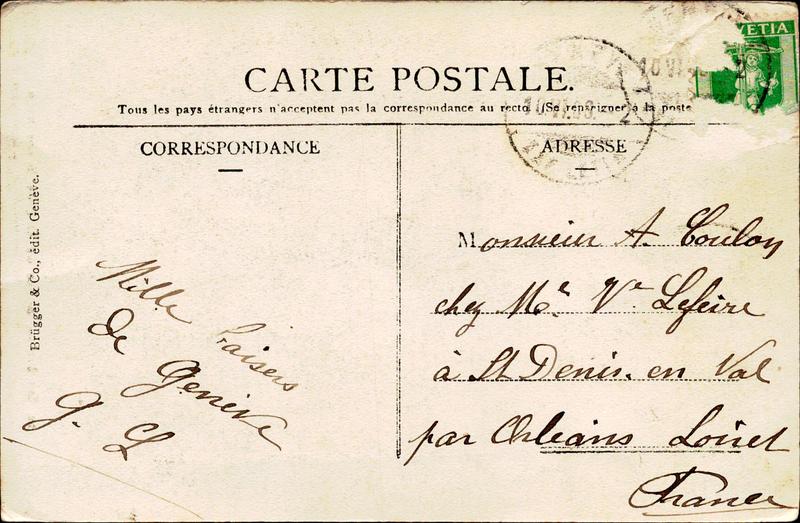 CARTE POSTALE.
Tous les pays étrangers n'acceptent pas la correspondance au recto (Se renseigner à la poste
CORRESPONDANCE
ADRESSE
Brügger & Co., édit. Genève.
Mille baisers
de Genève
G. L
Monsieur A. Coulon
chez Me Ve Lefeire
à St Denis. en Val
par Orléans Loiret
France
VETIA